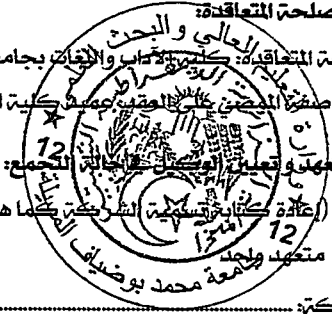 صلحة المتعاقدة:
ة المتعاقدة: كلية الآداب واللغات بجامع
صفة الممضي على العقد: عميد كلية ا
تعهد وتعيين الوكيل في حالة التجمع:
(إعادة كتابة تسمية الشركة كما ه
متعهد واحد
كة:
العالي و البحث
12
12
جامعة محمد بوضياف المسيلة